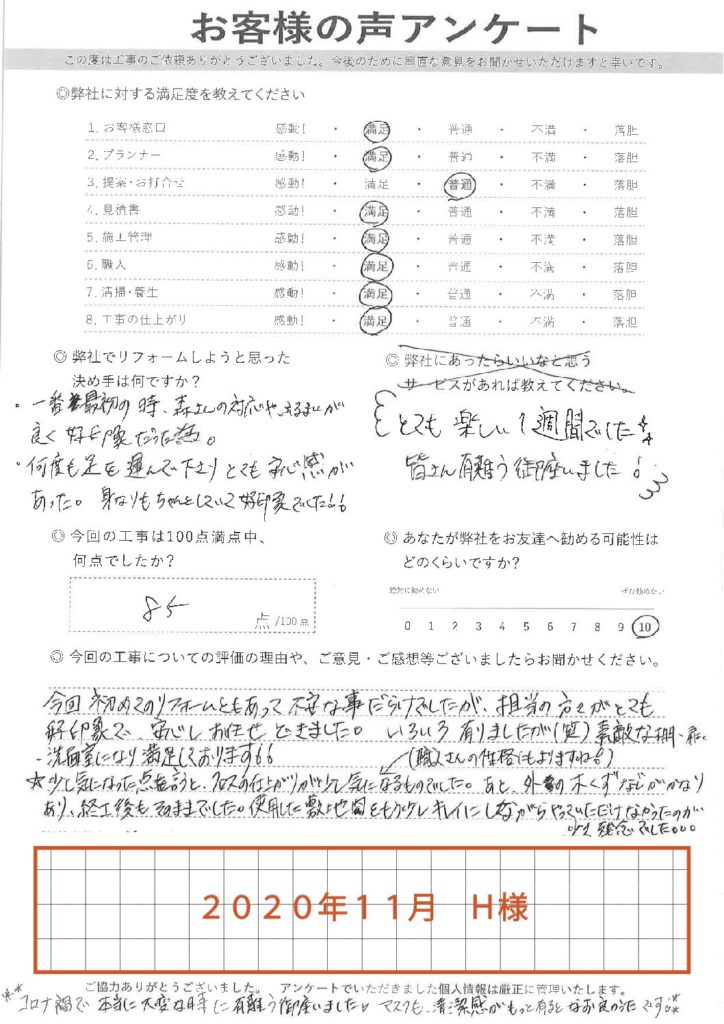 お客様の声アンケート
この度は工事のご依頼ありがとうございました。今後のために率直な意見をお聞かせいただけますと幸いです。
◎弊社に対する満足度を教えてください
1. お客様窓口 感動! ・ 満足 ・ 普通 ・ 不満 ・ 落胆
2. プランナー 感動! ・ 満足 ・ 普通 ・ 不満 ・ 落胆
3. 提案・お打合せ 感動! ・ 満足 ・ 普通 ・ 不満 ・ 落胆
4. 見積書 感動! ・ 満足 ・ 普通 ・ 不満 ・ 落胆
5. 施工管理 感動! ・ 満足 ・ 普通 ・ 不満 ・ 落胆
6. 職人 感動! ・ 満足 ・ 普通 ・ 不満 ・ 落胆
7. 清掃・養生 感動! ・ 満足 ・ 普通 ・ 不満 ・ 落胆
8. 工事の仕上がり 感動! ・ 満足 ・ 普通 ・ 不満 ・ 落胆
◎ 弊社でリフォームしようと思った
決め手は何ですか?
・一番最初の時、森さんの対応や、ふるまいが
良く好印象だった為。
・何度も足を運んで下さりとても安心感が
あった。身なりもちゃんとしていて好印象でした
◎ 弊社にあったらいいなと思う
サービスがあれば教えてください。
とても楽しい1週間でした
皆さん有難う御座いました
◎ 今回の工事は100点満点中、
何点でしたか?
85 点 /100点
◎ あなたが弊社をお友達へ勧める可能性は
どのくらいですか?
絶対に勧めない ぜひ勧めたい
0 1 2 3 4 5 6 7 8 9 10
◎ 今回の工事についての評価の理由や、ご意見・ご感想等ございましたらお聞かせください。
今回初めてのリフォームともあって不安な事だらけでしたが、担当の方々がとても
好印象で、安心しお任せできました。いろいろ有りましたが(笑)素敵な棚・
洗面室になり満足しております
(職人さんの性格にもよりますね!)
☆少し気になった点を言うと、クロスの仕上がりが少し気になるものでした。あと、外の木くずなどがかなり
あり、終工後もそのままでした。使用した敷地内をもう少しキレイにしながらやっていただけなかったのが
少し残念でした。。。
2020年11月 H様
ご協力ありがとうございました。 アンケートでいただきました個人情報は厳正に管理いたします。
コロナ禍で本当に大変な時に有難う御座いました マスクも、清潔感がもっと有るとなお良かったです